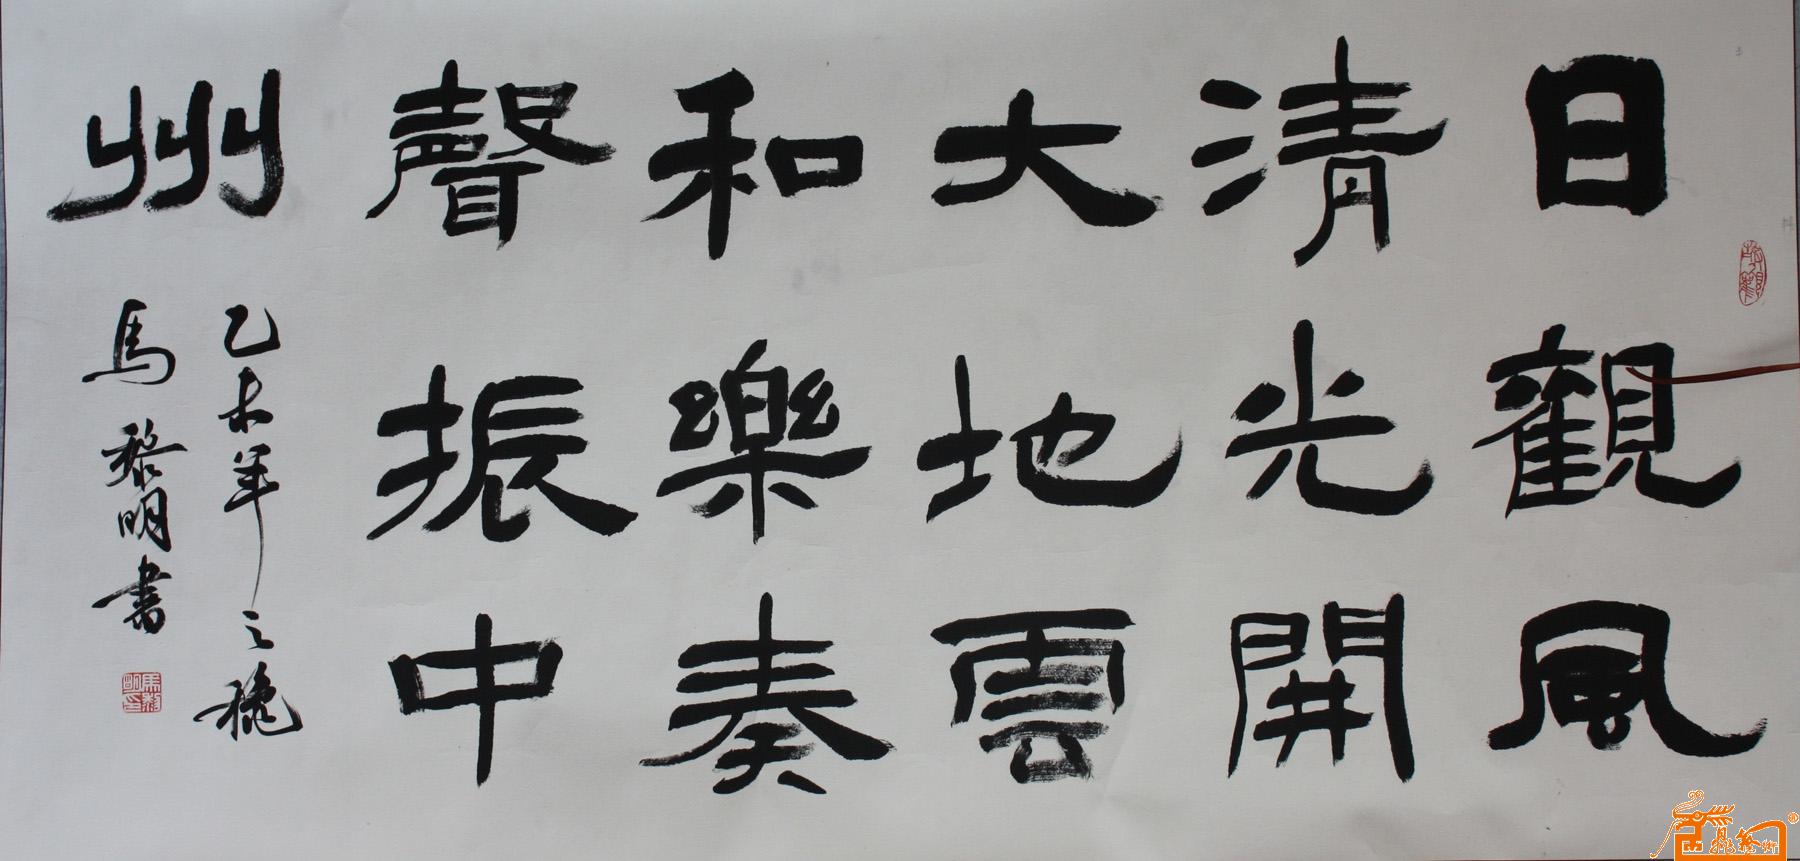 日觀風
清光開
大地雲
和樂奏
聲振中
州
乙未年之秋
馬黎明書